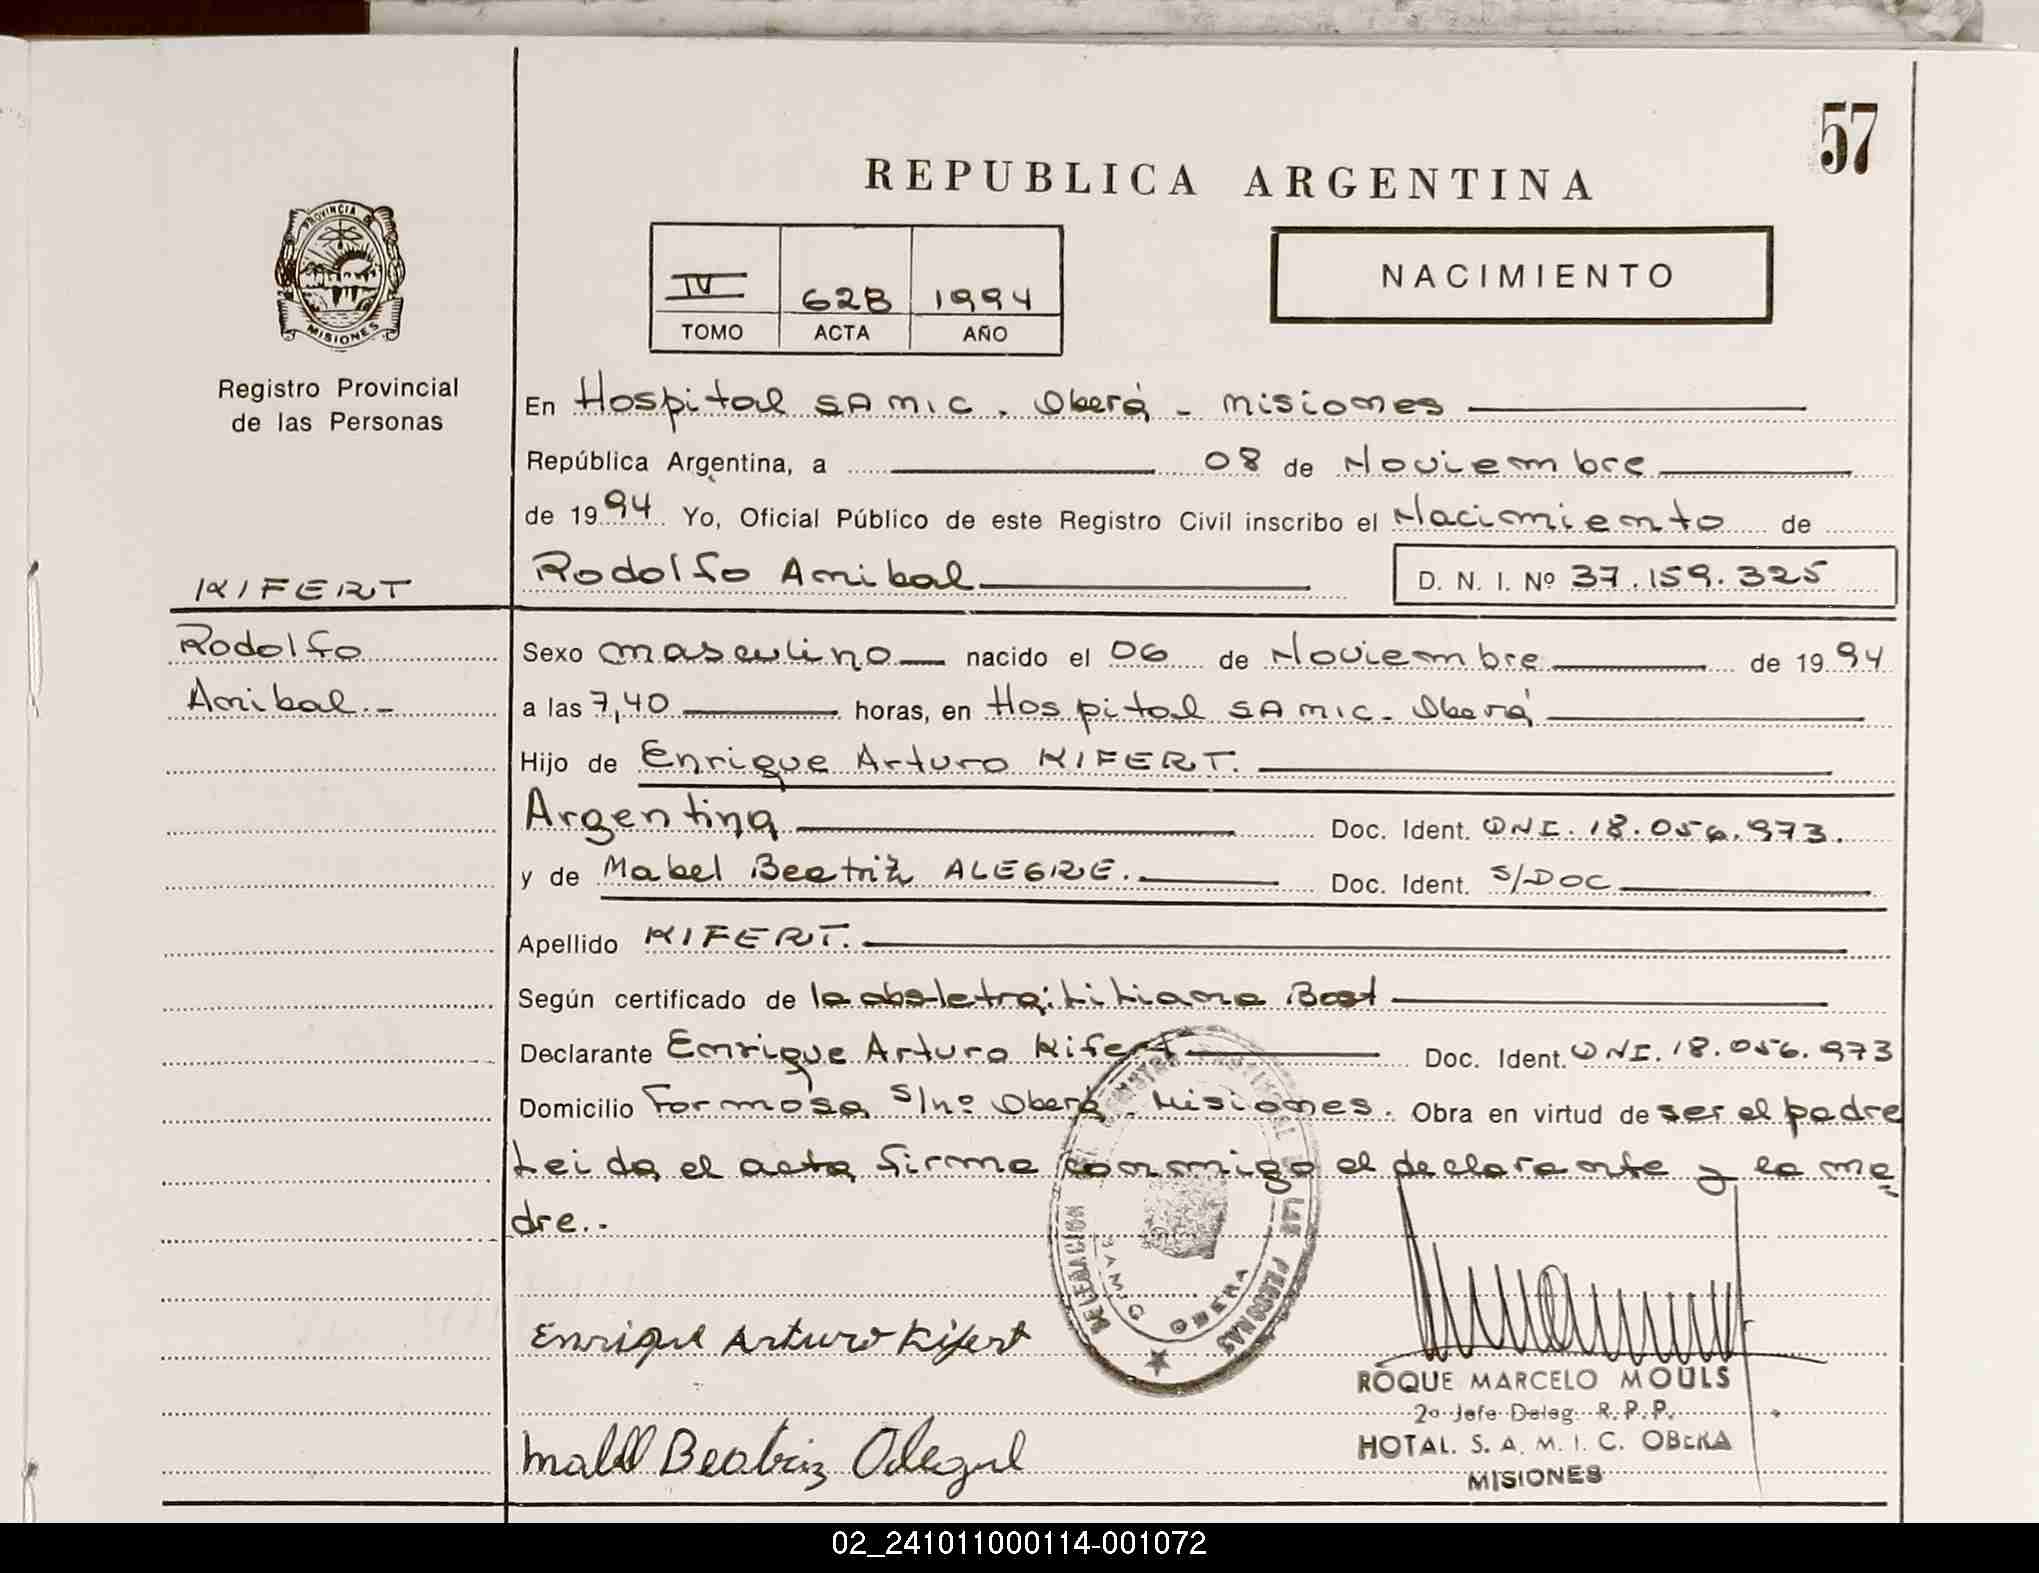 57
REPUBLICA ARGENTINA
PROVINCIA DE
MISIONES
IV 628 1994
TOMO ACTA AÑO
NACIMIENTO
Registro Provincial
de las Personas
En Hospital SAMIC. Oberá - Misiones
República Argentina, a 08 de Noviembre
de 1994 Yo, Oficial Público de este Registro Civil inscribo el Nacimiento de
KIFERT
Rodolfo Anibal D. N. I. Nº 37.159.325
Rodolfo
Sexo masculino nacido el 06 de Noviembre de 1994
Anibal.-
a las 7,40 horas, en Hospital SAMIC. Oberá
Hijo de Enrique Arturo KIFERT.
Argentina Doc. Ident. DNI. 18.056.973.
y de Mabel Beatriz ALEGRE. Doc. Ident. S/DOC
Apellido KIFERT.
Según certificado de la obstetra: Liliana Bost
Declarante Enrique Arturo Kifert Doc. Ident. DNI. 18.056.973
Domicilio Formosa s/nº Oberá. Misiones. Obra en virtud de ser el padre
Leida el acta firma conmigo el declarante y la ma
dre.-
DELEGACION DEL REGISTRO PROVINCIAL DE LAS PERSONAS
SAMIC OBERA
Enrique Arturo Kifert
Mabel Beatriz Alegre
ROQUE MARCELO MOULS
2º Jefe Deleg. R. P. P.
HOTAL. S. A. M. I. C. OBERA
MISIONES
02_241011000114-001072